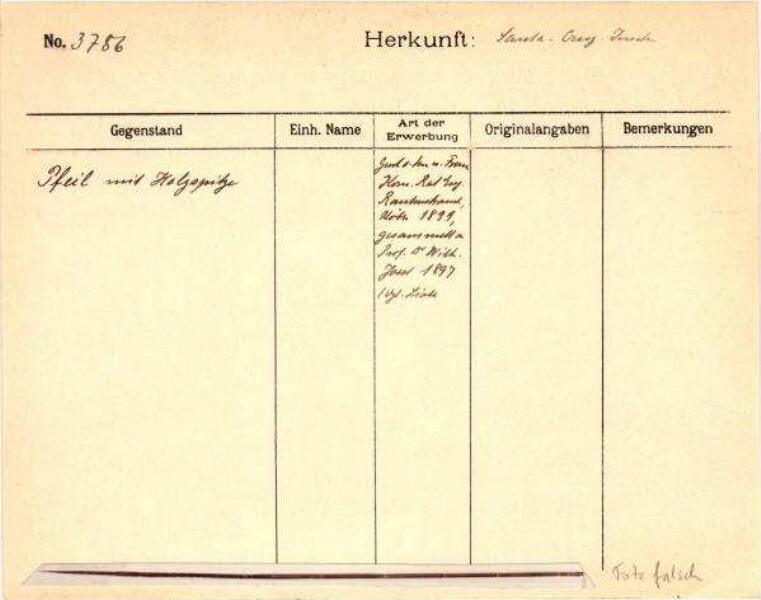 No. 3786
Herkunft: Santa-Cruz-Inseln
Gegenstand
Einh. Name
Art der Erwerbung
Originalangaben
Bemerkungen
Pfeil mit Holzspitze
Gesch. u. Frau
Kom. Rat Eug.
Rautenstrauch,
Köln 1899,
gesammelt v.
Prof. Dr Wilh.
Joest 1897
Foto falsch